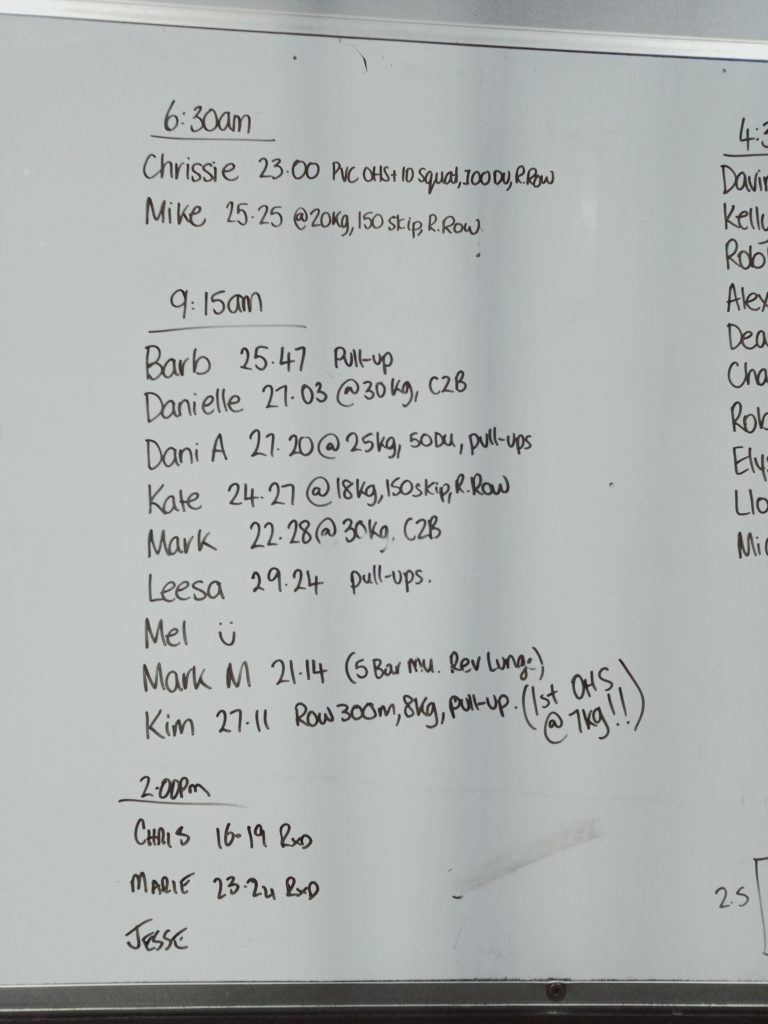 6:30am
Chrissie 23.00 PVC OHS + 10 Squat, 100DU, R.Row
Mike 25.25 @20kg, 150 skip, R.Row
9:15am
Barb 25.47 Pull-up
Danielle 27.03 @30kg, C2B
Dani A 27.20 @ 25kg, 50DU, pull-ups
Kate 24.27 @18kg, 150skip, R.Row
Mark 22.28 @ 30kg. C2B
Leesa 29.24 pull-ups.
Mel ü
Mark M 21.14 (5 Bar mu. Rev Lunge)
Kim 27.11 Row 300m, 8kg, pull-up. (1st OHS
@ 7kg!!)
2.00pm
CHRIS 16-19 RxD
MARIE 23.24 RxD
JESSE
4:3
Davin
Kelly
Rob
Alex
Dea
Cha
Rob
Ely
Llo
Mi
2.5